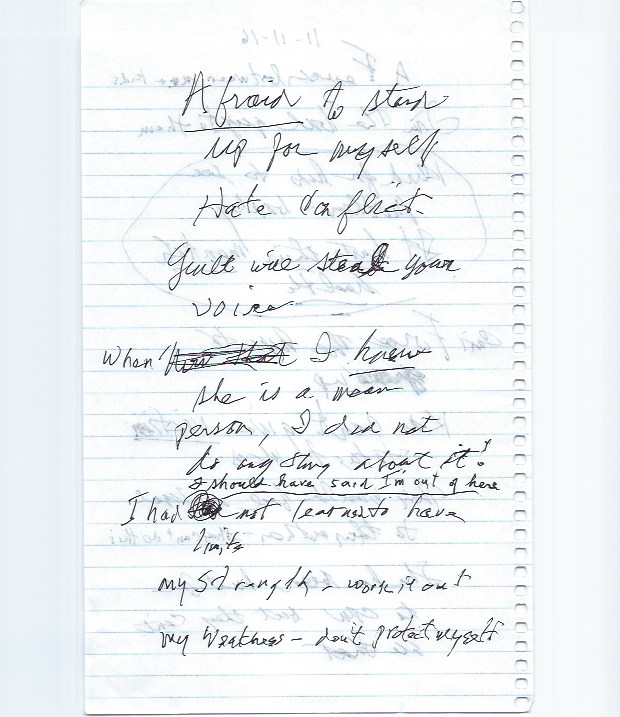 Afraid to stand
up for myself
Hate Conflict
Guilt will steal your
voice
When I know
she is a mean
person, I did not
do anything about it?
I should have said I'm out of here
I had not learned to have
limits
my Strength - work it out
my Weakness - don't protect myself